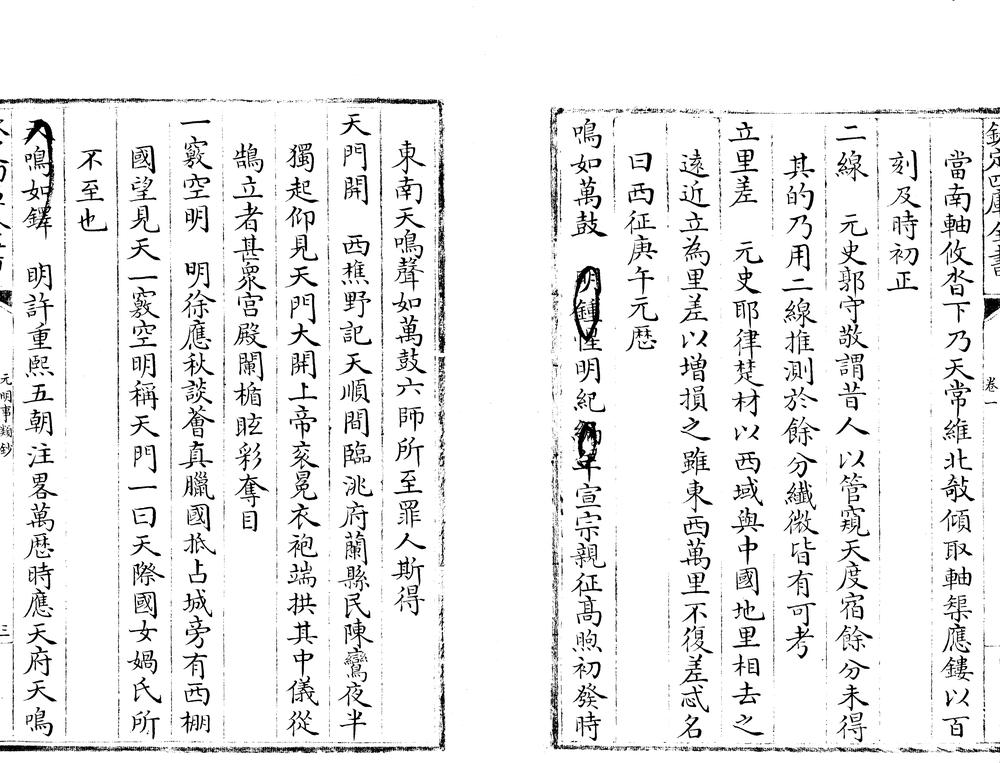 欽定四庫全書
卷一
當南軸攸沓下乃天常維北欹傾取軸榘應鏤以百
刻及時初正
二線　元史郭守敬謂昔人以管窺天度宿餘分未得
其的乃用二線推測於餘分纎微皆有可考
立里差　元史耶律楚材以西域與中國地里相去之
遠近立為里差以増損之雖東西萬里不復差忒名
曰西征庚午元厯
鳴如萬鼓　明鍾惺明紀編年宣宗親征髙煦初發時
東南天鳴聲如萬鼓六師所至罪人斯得
天門開　西樵野記天順間臨洮府蘭縣民陳鸞夜半
獨起仰見天門大開上帝衮冕衣袍端拱其中儀從
鵠立者甚衆宫殿闌楯眩彩奪目
一竅空明　明徐應秋談薈真臘國抵占城旁有西棚
國望見天一竅空明稱天門一曰天際國女媧氏所
不至也
天鳴如鐸　明許重熙五朝注畧萬厯時應天府天鳴
元明事類鈔
三